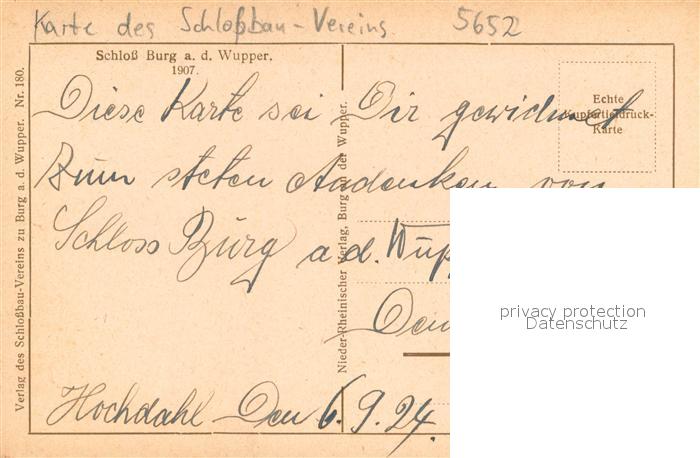 Karte des Schloßbau-Vereins 5652
Schloß Burg a. d. Wupper.
1907.
Echte
Kupfertiefdruck-
Karte
Diese Karte sei Dir gewidmet
zum steten Andenken von
Schloss Burg a.d. Wupp
Hochdahl Den 6.9.24.
Verlag des Schloßbau-Vereins zu Burg a. d. Wupper. Nr. 180.
Nieder-Rheinischer Verlag, Burg der Wupper.
privacy protection
Datenschutz